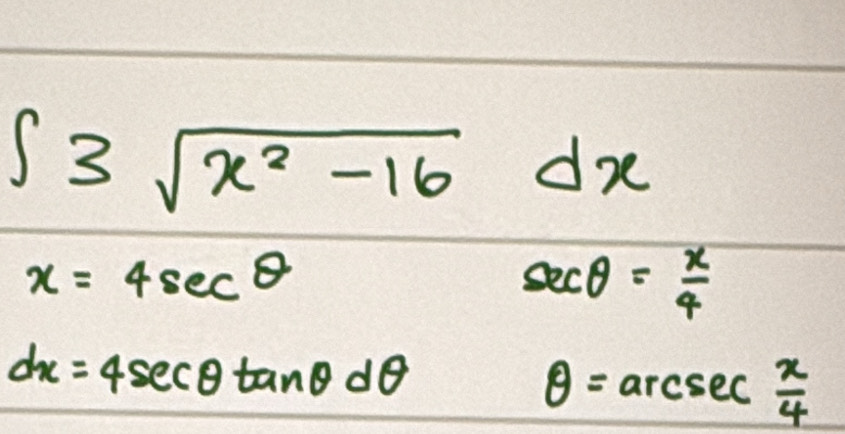 ∫ 3 √(x² - 16) dx
x = 4 sec θ    sec θ = x/4
dx = 4 sec θ tan θ dθ    θ = arcsec x/4